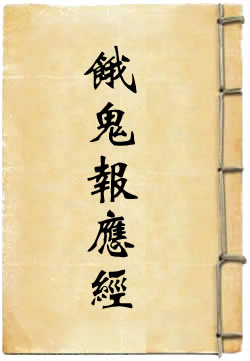 餓鬼報應經